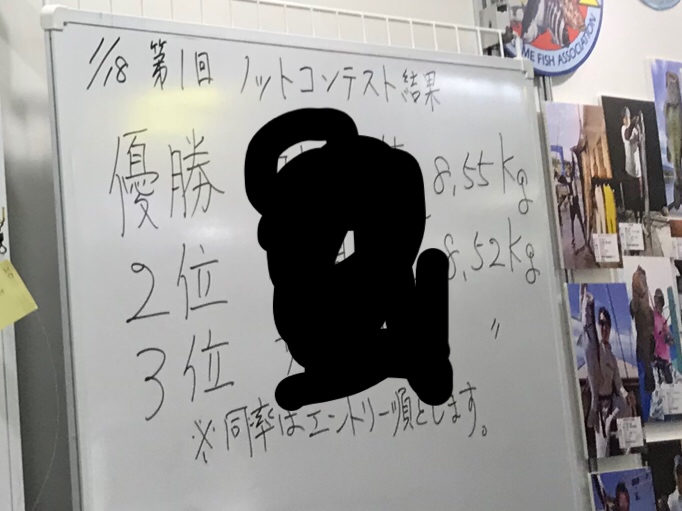 ME FISH ASSOCIATION
1/18 第1回 ノットコンテスト結果
優勝 8,55kg
2位 8,52kg
3位 〃
※同率はエントリー順とします。